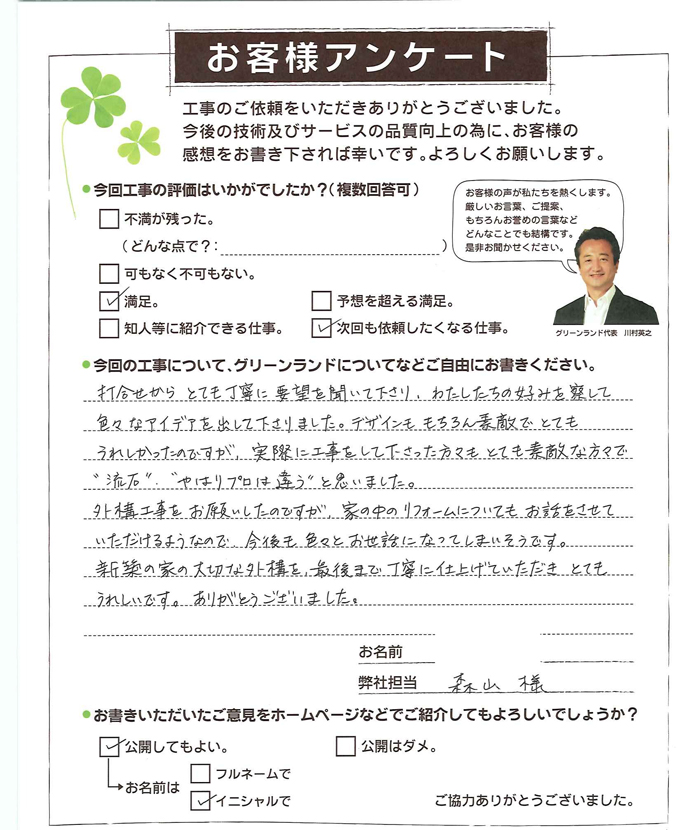 お客様アンケート
工事のご依頼をいただきありがとうございました。
今後の技術及びサービスの品質向上の為に、お客様の
感想をお書き下されば幸いです。よろしくお願いします。
●今回工事の評価はいかがでしたか？(複数回答可)
不満が残った。
(どんな点で？： )
可もなく不可もない。
満足。 予想を超える満足。
知人等に紹介できる仕事。 次回も依頼したくなる仕事。
お客様の声が私たちを熱くします。
厳しいお言葉、ご提案、
もちろんお誉めの言葉など
どんなことでも結構です。
是非お聞かせください。
グリーンランド代表 川村英之
●今回の工事について、グリーンランドについてなどご自由にお書きください。
打合せから とても丁寧に 要望を聞いて下さり、わたしたちの好みを察して
色々なアイデアを出して下さりました。デザインも もちろん素敵で とても
うれしかったのですが、実際に工事をして下さった方々も とても素敵な方々で
"流石"、"やはりプロは違う"と思いました。
外構工事を お願いしたのですが、家の中のリフォームについても お話をさせて
いただけるようなので、今後も 色々とお世話になってしまいそうです。
新築の家の大切な外構を、最後まで丁寧に仕上げていただき とても
うれしいです。ありがとうございました。
お名前
弊社担当 森山 様
●お書きいただいたご意見をホームページなどでご紹介してもよろしいでしょうか？
公開してもよい。 公開はダメ。
お名前は フルネームで
イニシャルで
ご協力ありがとうございました。